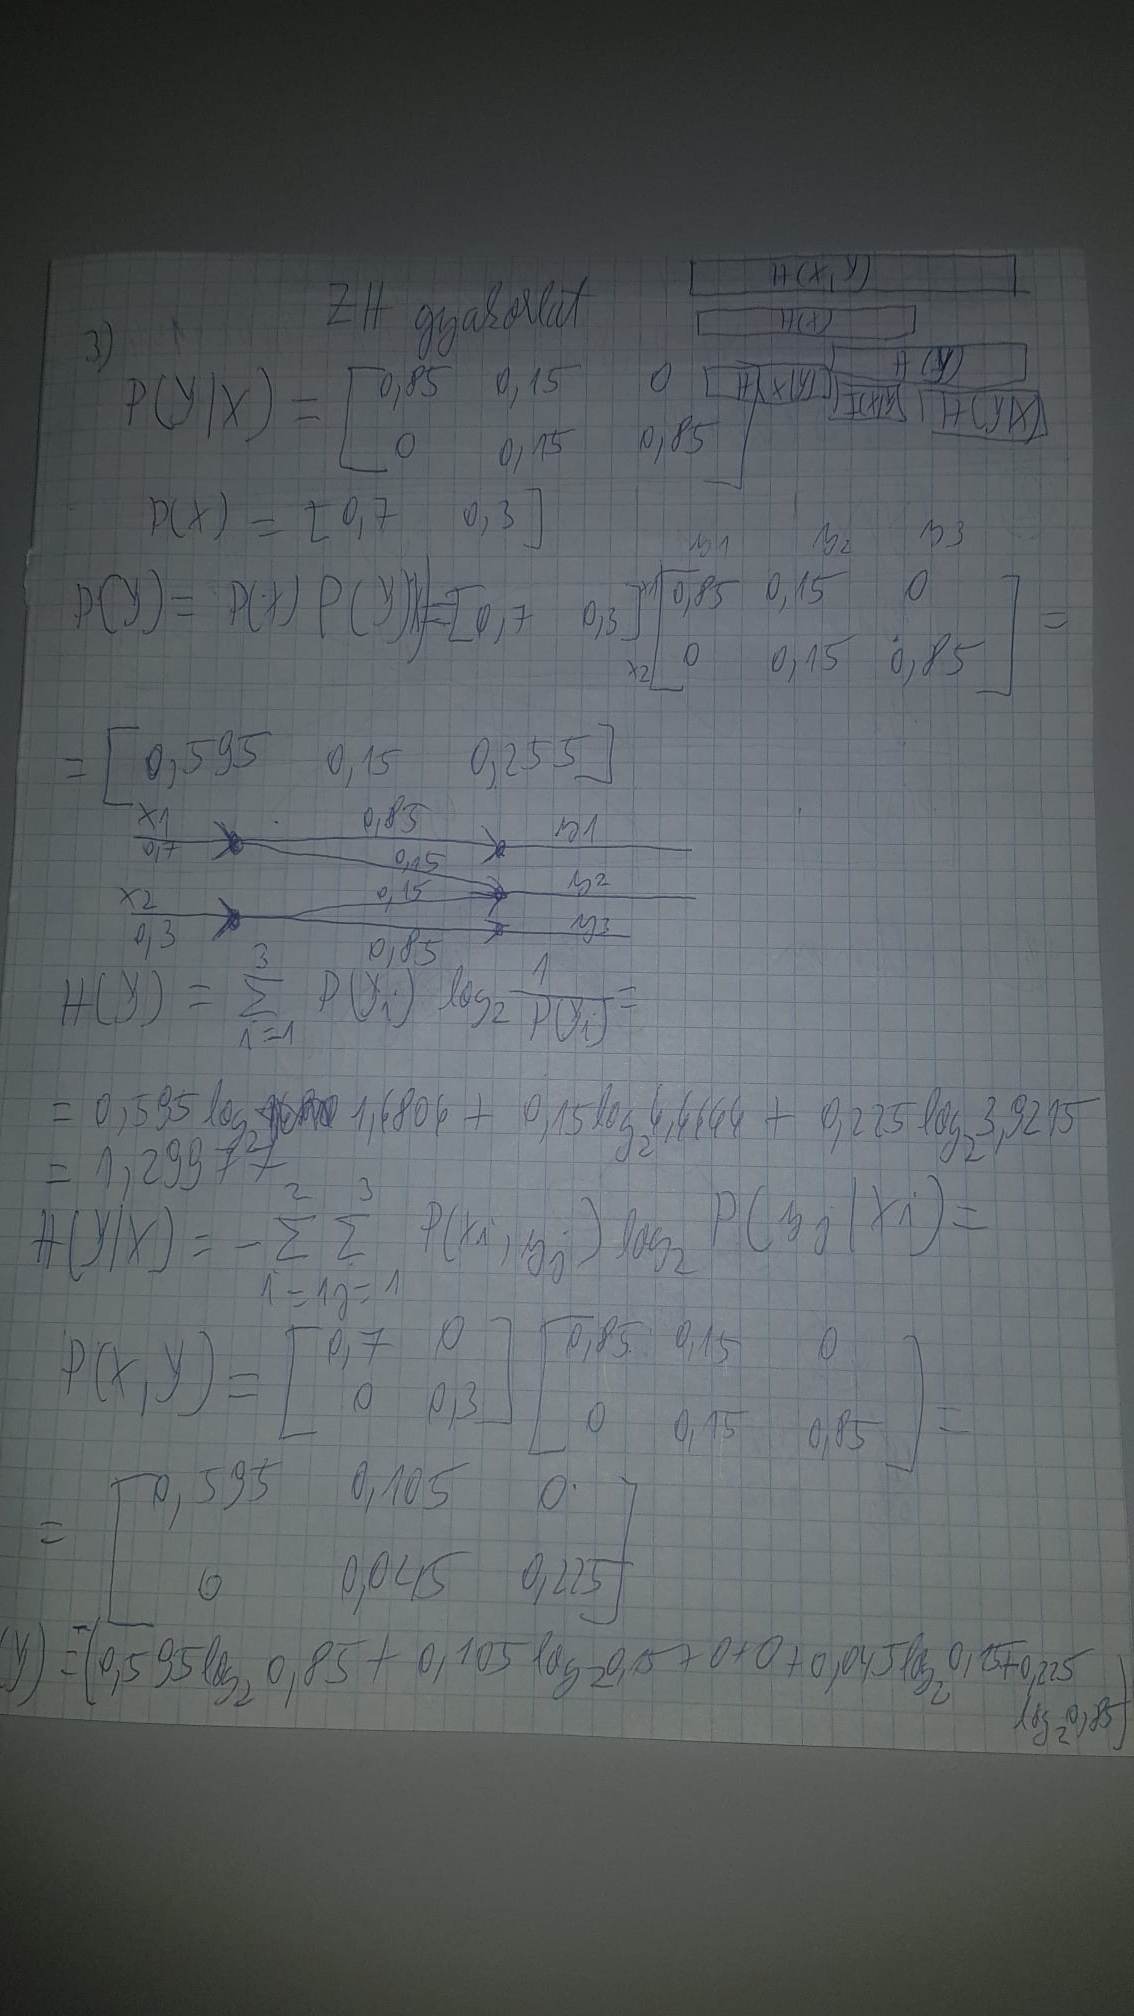 ZH gyakorlat
H(X,Y)
H(X)
H(Y)
H(X|Y) I(X;Y) H(Y|X)
3)
P(Y|X) = [0,85 0,15 0
0 0,15 0,85]
P(X) = [0,7 0,3]
y1 y2 y3
P(Y) = P(X) P(Y|X) = [0,7 0,3] x1 [0,85 0,15 0
x2 0 0,15 0,85] =
= [0,595 0,15 0,255]
x1 0,85 y1
0,7 0,15
x2 0,15 y2
0,3 0,85 y3
H(Y) = 3 Σ i=1 P(Yi) log2 1/P(Yi) =
= 0,595 log2 1,6804 + 0,15 log2 4,4444 + 0,225 log2 3,9215
= 1,29977
H(Y|X) = - 2 Σ i=1 3 Σ j=1 P(xi, yj) log2 P(yj|xi) =
P(X,Y) = [0,7 0
0 0,3] [0,85 0,15 0
0 0,15 0,85] =
= [0,595 0,105 0
0 0,045 0,225]
Y) = -(0,595 log2 0,85 + 0,105 log2 0,15 + 0 + 0 + 0,045 log2 0,15 + 0,225
log2 0,85)